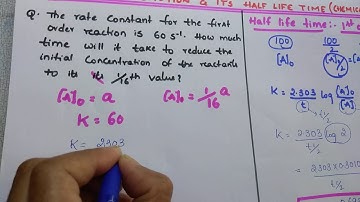 TION & ITS HALF LIFE TIME (CHEMIC
Q. The rate constant for the first
order reaction is 60 s⁻¹. How much
time will it take to reduce the
initial concentration of the reactants
to its 1/16th value?
[A]₀ = a
[A]₀ = 1/16 a
K = 60
K = 2303
Half life time:- 1st
100
100/2
[A]₀
[A]₀/2
K = 2.303/t log [A]₀/[A]
t1/2
K = 2.303/t1/2 log 2
= 2.303 x 0.3010
t1/2